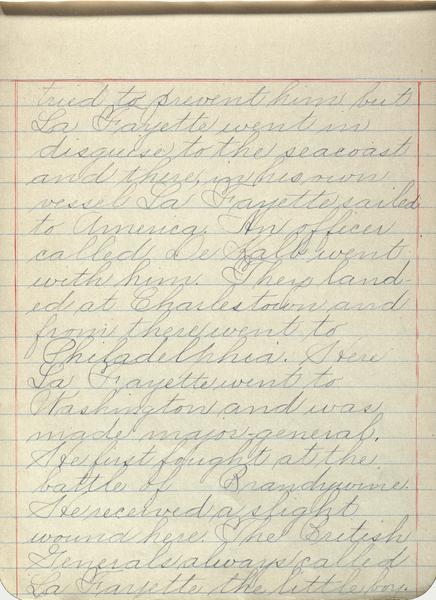 tried to prevent him but
La Fayette went in
disguise to the seacoast
and there, in his own
vessel La Fayette sailed
to America. An officer
called De Kalb went
with him. They land-
ed at Charlestown and
from there went to
Philadelhhia. Here
La Fayette went to
Washington and was
made major-general.
He first fought at the
battle of Brandywine.
He received a slight
wound here. The British
Generals always called
La Fayette the little boy.